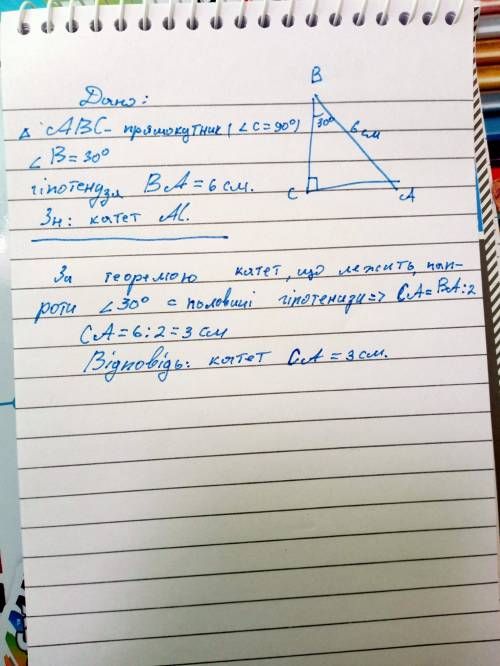 Дано:
△ ABC - прямокутник (∠C=90°)
∠B=30°
гіпотенуза BA=6 см.
Зн: катет AC.
B
30°
6 см
C
A
За теоремою катет, що лежить нап-
роти ∠30° = половині гіпотенузи=> CA=BA:2
CA=6:2=3 см
Відповідь: катет CA=3 см.